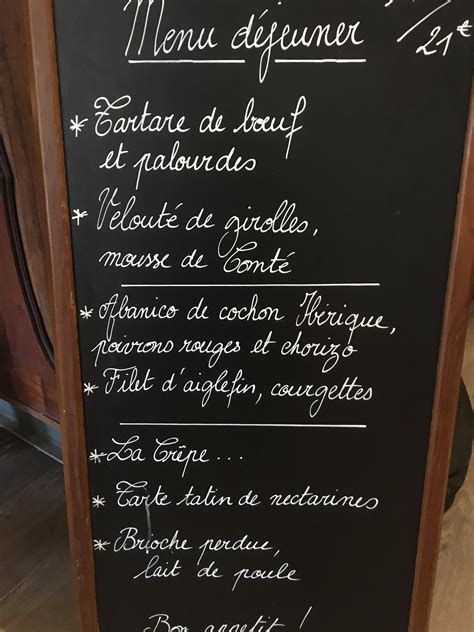 Menu déjeuner /21€
* Tartare de bœuf
et palourdes
* Velouté de girolles,
mousse de Comté
* Abanico de cochon Ibérique,
poivrons rouges et chorizo
* Filet d'aiglefin, courgettes
* La Crêpe...
* Tarte tatin de nectarines
* Brioche perdue,
lait de poule
Bon appetit !